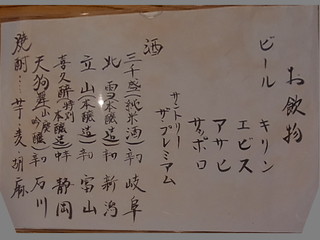 お飲物
ビール
キリン
エビス
アサヒ
サッポロ
サントリー
ザ・プレミアム
酒
三千盛(純米酒)辛 岐阜
北雪(本醸造)和 新潟
立山(本醸造)和 富山
喜久酔(特別本醸造)中 静岡
天狗舞(山廃吟醸)和 石川
焼酎…芋・麦・胡麻